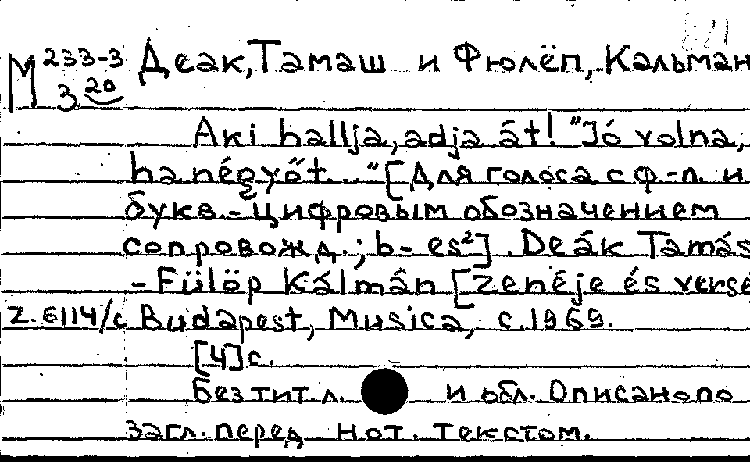 М 233-3 Деак, Тамаш и Фюлёп, Кальман
3 20
Aki hallja, adja át! "Jó volna,
ha négyőt..." [Для голоса с ф-п. и
букв.-цифровым обозначением
сопровожд.; b-es²]. Deák Tamás
- Fülöp Kálmán [zenéje és verse
Z.6114/c Budapest, Musica, c.1969.
[4]с.
Без тит л. и обл. Описано по
загл. перед нот. текстом.